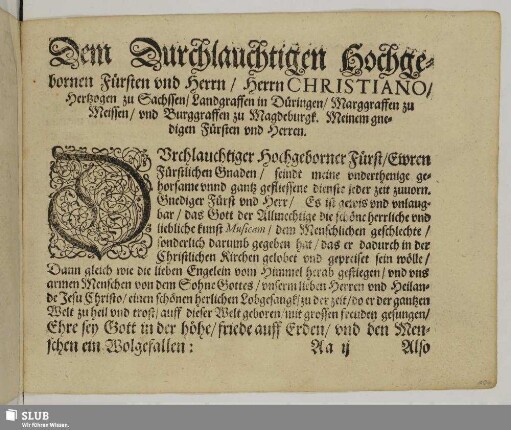 Dem Durchlauchtigen Hochge-
bornen Fürsten vnd Herrn / Herrn CHRISTIANO /
Hertzogen zu Sachssen / Landgraffen in Düringen / Marggraffen zu
Meissen / vnd Burggraffen zu Magdeburgk. Meinem gne-
digen Fürsten vnd Herren.
DVrchlauchtiger Hochgeborner Fürst / Ewren
Fürstlichen Gnaden / seindt meine vnderthenige ge-
horsame vnnd gantz geflissene dienste jeder zeit zuuorn.
Gnediger Fürst vnd Herr / Es ist gewis vnd vnlaug-
bar / das Gott der Allmechtige die schöne herrliche vnd
liebliche kunst Musicam / dem Menschlichen geschlechte /
sonderlich darumb gegeben hat / das er dadurch in der
Christlichen Kirchen gelobet vnd gepreiset sein wölle /
Dann gleich wie die lieben Engelein vom Himmel herab gestiegen / vnd vns
armen Menschen von dem Sohne Gottes / vnserm lieben Herren vnd Heilan-
de Jesu Christo / einen schönen herlichen Lobgesangk / zu der zeit / do er der gantzen
Welt zu heil vnd trost / auff dieser Welt geboren / mit grossen freuden gesungen /
Ehre sey Gott in der höhe / friede auff Erden / vnd den Men-
schen ein Wolgefallen : Aa ij Also
SLUB
Wir führen Wissen.